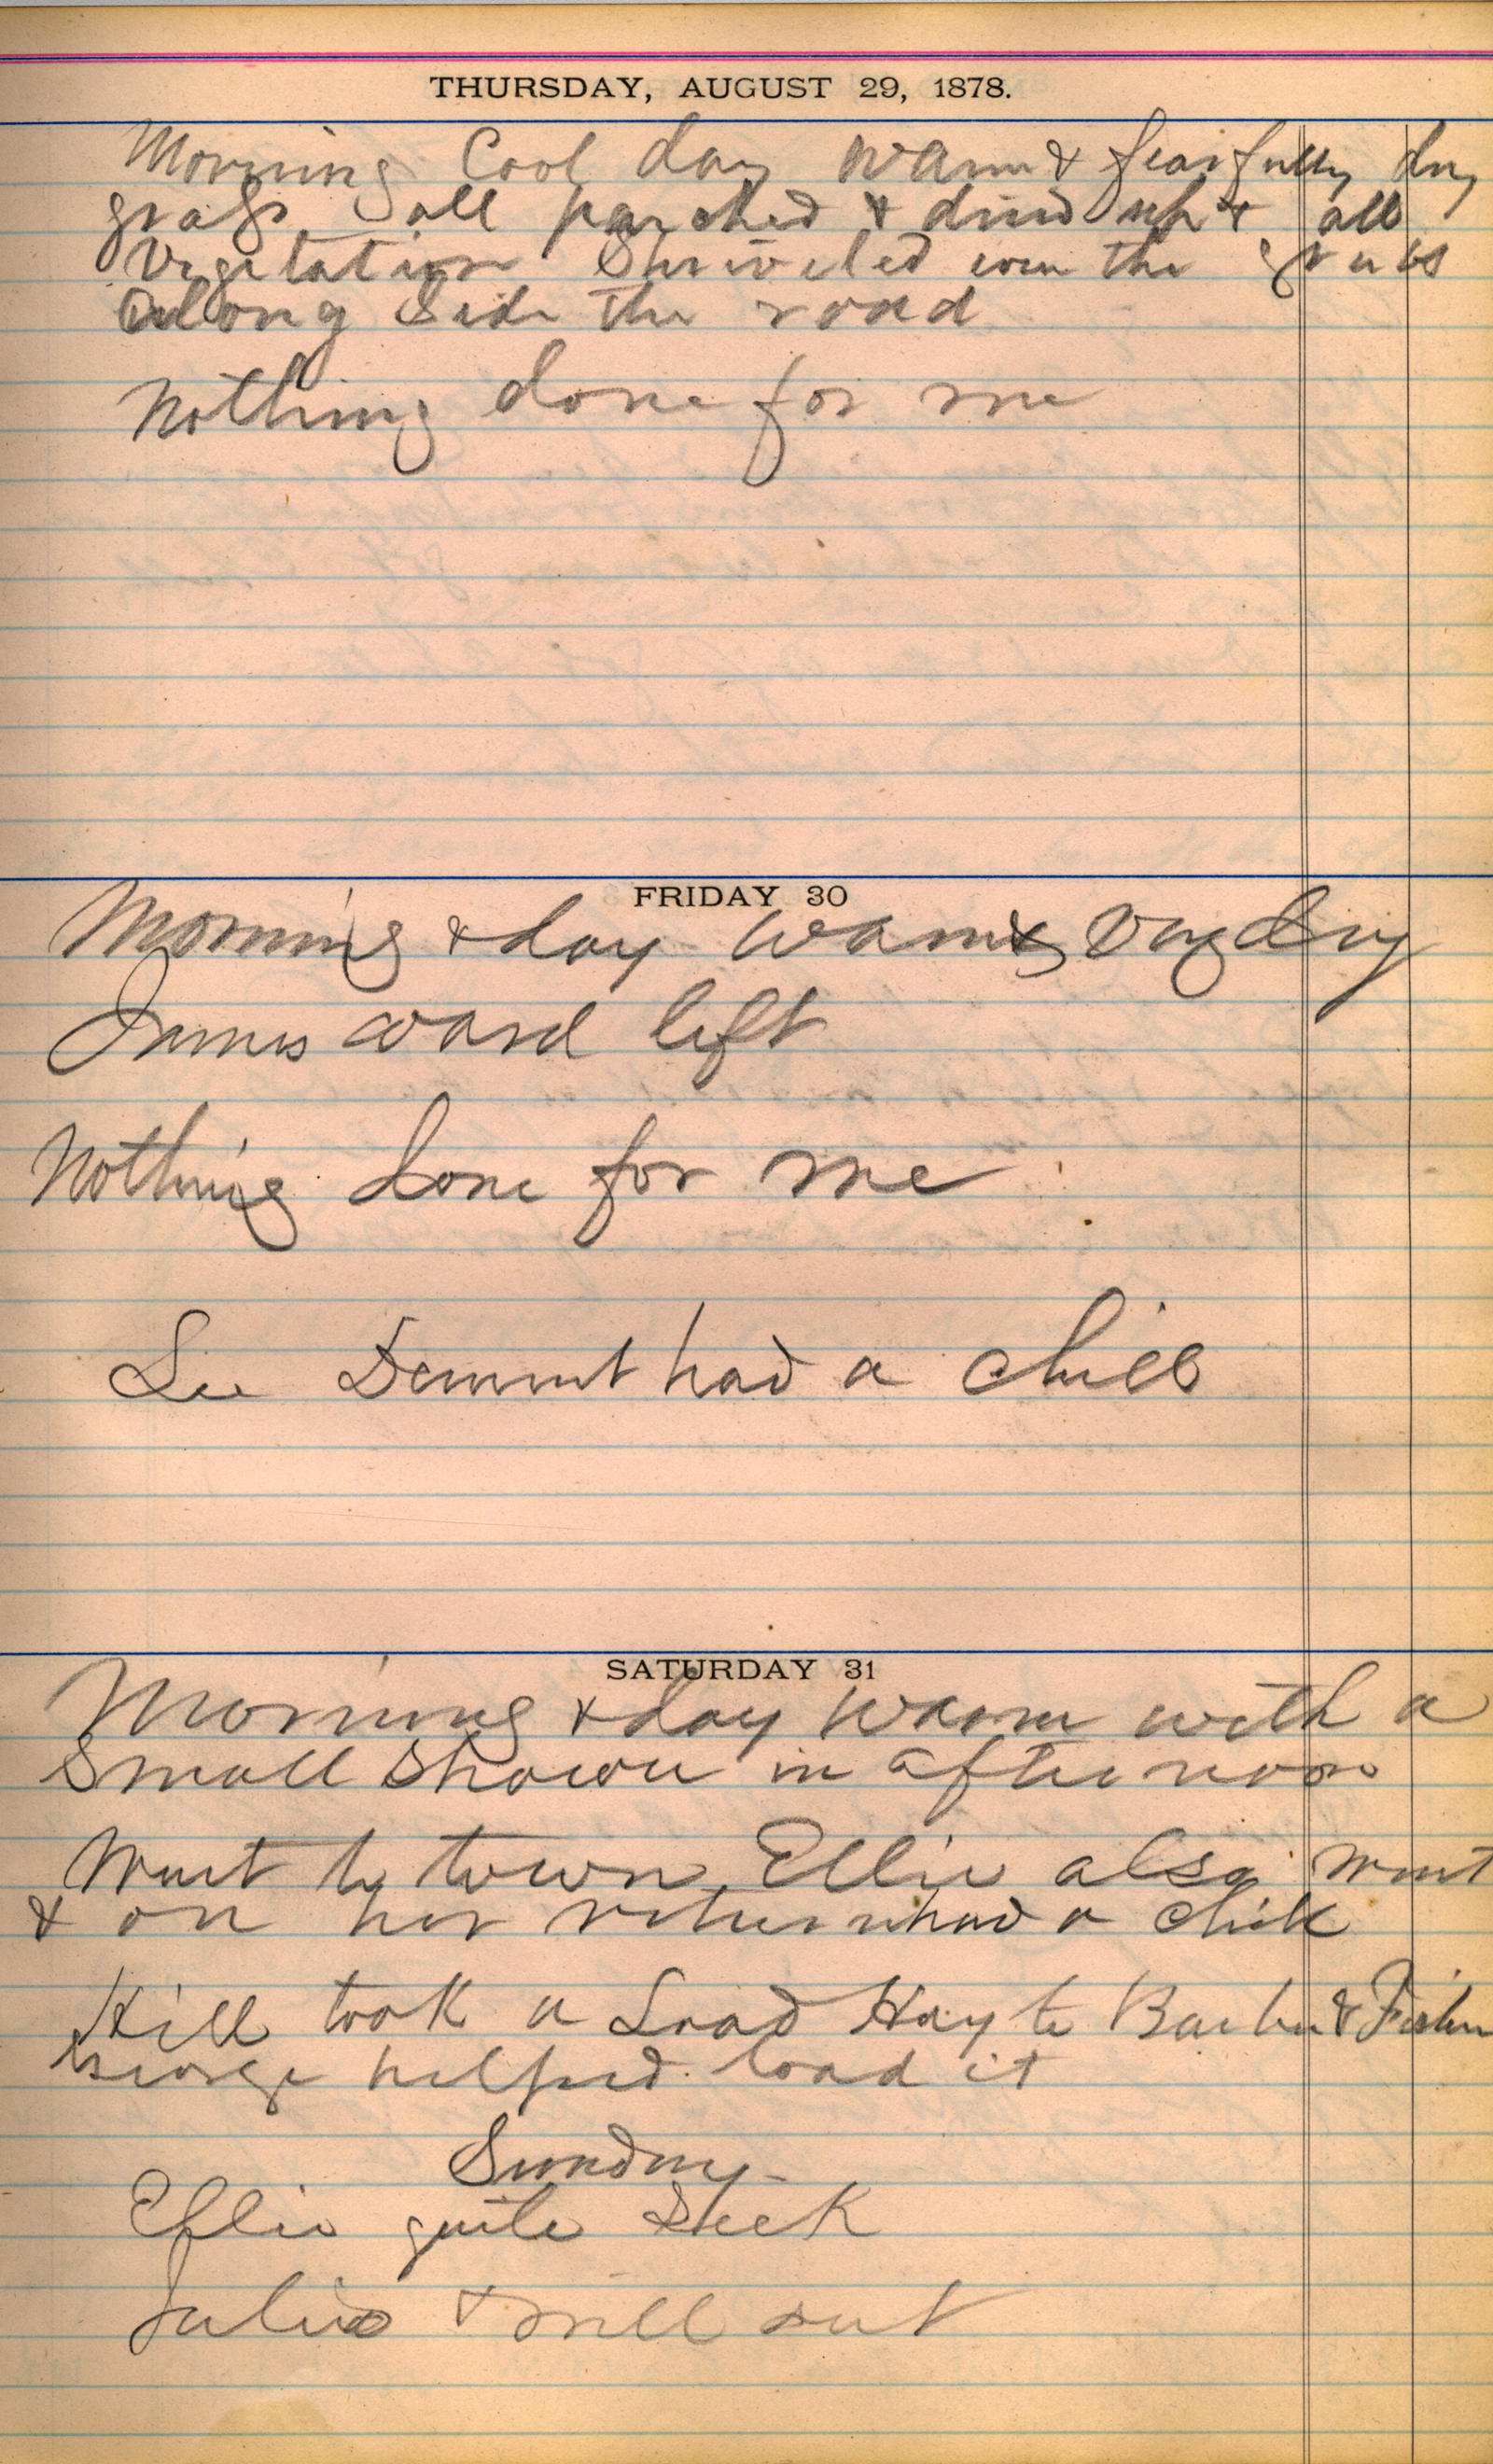 THURSDAY, AUGUST 29, 1878.
Morning Cool day warm & fearfully dry
grass all parched & dried up & all
Vegetation Shriveled even the
along Side the road
Nothing done for me
FRIDAY 30
Morning & day warm & Very dry
James Ward left
Nothing done for me
Lee Demmit had a chill
SATURDAY 31
Morning & day warm with a
Small Shower in afternoon
Went to town Ellie also went
& on her return had a chill
Hill took a Load Hay to &
George helped load it
Sunday
Ellie quite Sick
Julia & out